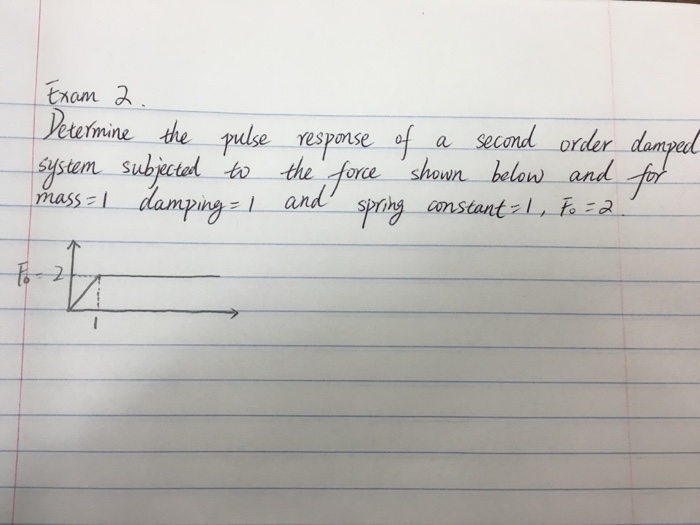 Exam 2.
Determine the pulse response of a second order damped
system subjected to the force shown below and for
mass=1 damping=1 and spring constant=1, F₀=2.
F₀=2
1